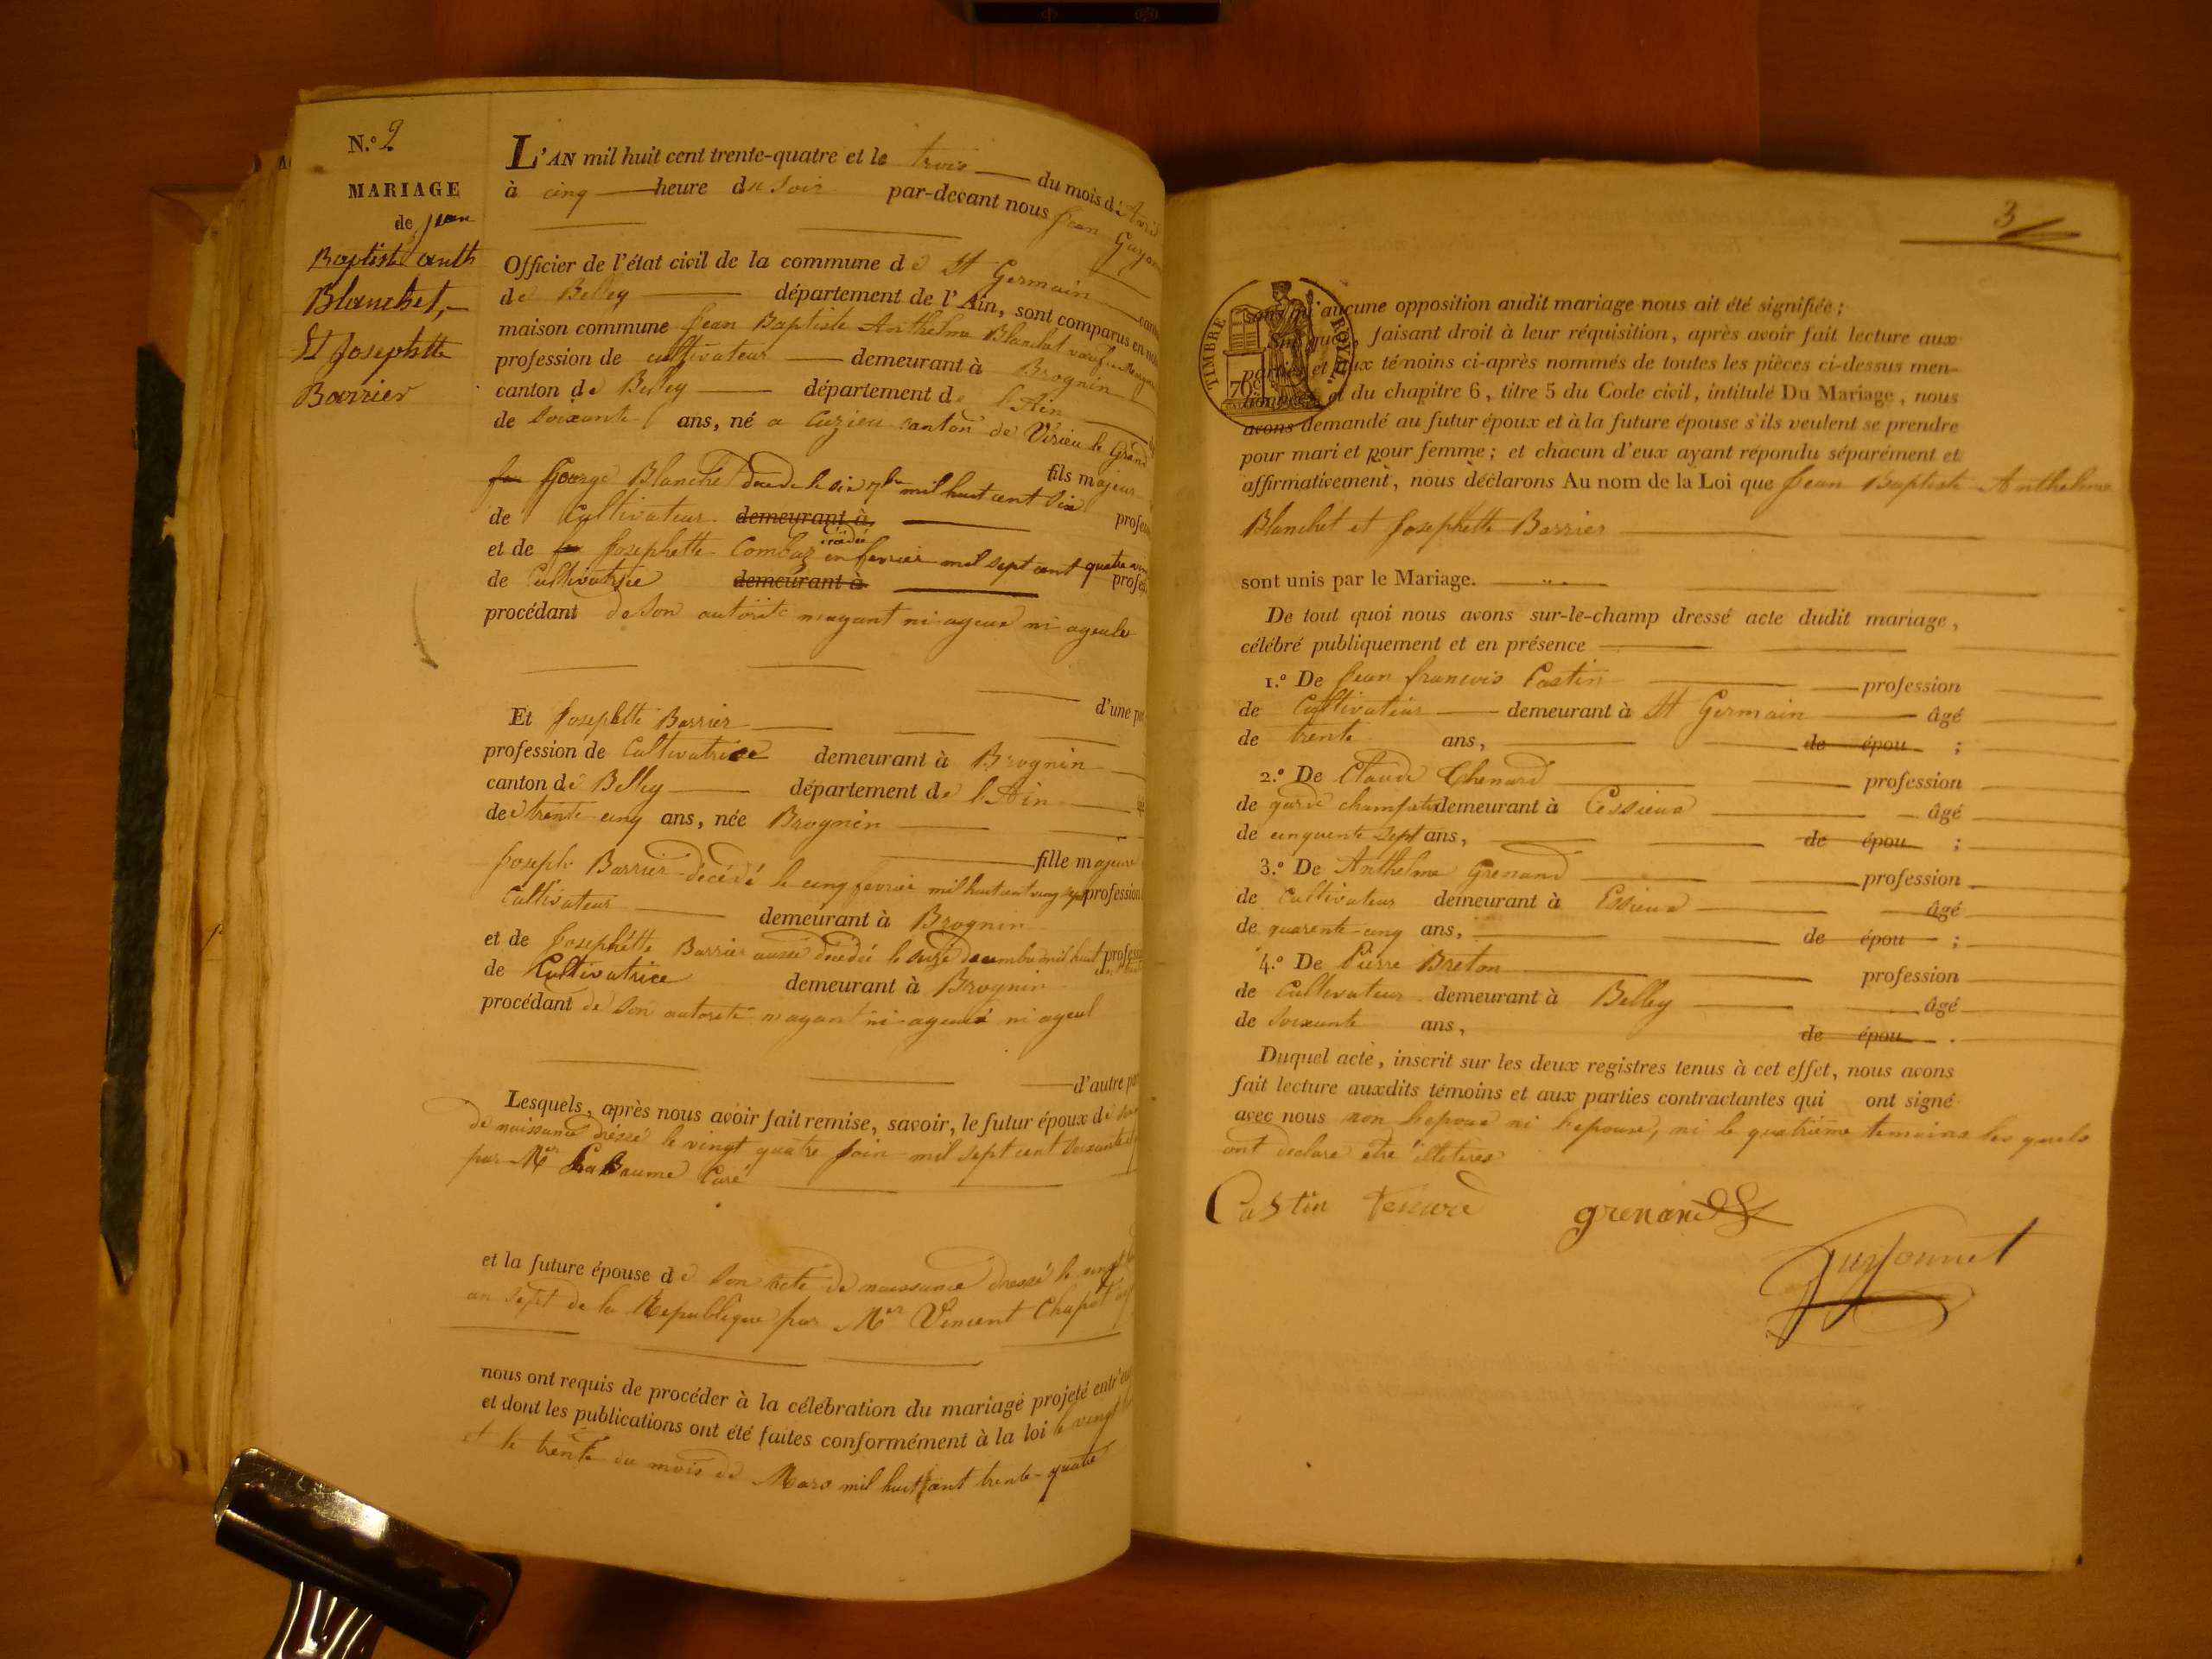 N.º 2
MARIAGE
de jean
Baptiste anth
Blanchet,
Et Josephtte
Barrier
L'AN mil huit cent trente-quatre et le trois du mois de Avril
à cinq heure du soir par-devant nous Jean Guyon
Officier de l'état civil de la commune de St Germain
de Belley département de l'Ain, sont comparus en
maison commune Jean Baptiste Anthelme Blanchet
profession de cultivateur demeurant à Brognin
canton de Belley département de l'Ain
de soixante ans, né a Cuzieu canton de Virieu le Grand
fils majeur
feu George Blanchet décédé le six mil huit cent six
de Cultivateur demeurant à profes
et de feu Josephette Combaz en fevrier mil sept cent quatre
de Cultivatrice demeurant à profes
procédant de son autorité nayant ni ayeux ni ayeule
d'une pa
Et Josephtte Barrier
profession de Cultivatrice demeurant à Brognin
canton de Belley département de l'Ain
de trente cinq ans, née Brognin
fille majeure
Joseph Barrier décédé le cinq fevrier mil huit cent vingt profession
Cultivateur demeurant à Brognin
et de Josephétte Barrier aussi décédée le decembre mil huit profess
de Cultivatrice demeurant à Brognin
procédant de son autoreté nayant ni ayeux ni ayeul
d'autre par
Lesquels, après nous avoir fait remise, savoir, le futur époux de
de naissance dréssé le vingt quatre join mil sept cent soixante
par Mer LaBaume Curé
et la future épouse de son acte de naissance dressé le
an sept de la Republique par Mer Vincent Chapot
nous ont requis de procéder à la célébration du mariage projeté entr'eux
et dont les publications ont été faites conformément à la loi le vingt
et le trente du mois de Mars mil huit cent trente-quatre
3
TIMBRE ROYAL
70c
sans qu'aucune opposition audit mariage nous ait été signifiée;
Sur quoi, faisant droit à leur réquisition, après avoir fait lecture aux
parties et aux témoins ci-après nommés de toutes les pièces ci-dessus men-
tionnées et du chapitre 6, titre 5 du Code civil, intitulé Du Mariage, nous
avons demandé au futur époux et à la future épouse s'ils veulent se prendre
pour mari et pour femme; et chacun d'eux ayant répondu séparément et
affirmativement, nous déclarons Au nom de la Loi que Jean Baptiste Anthelme
Blanchet et Josephette Barrier
sont unis par le Mariage.
De tout quoi nous avons sur-le-champ dressé acte dudit mariage,
célébré publiquement et en présence
1.º De Jean francois Castin profession
de Cultivateur demeurant à St Germain âgé
de trente ans, de épou ;
2.º De Claude Chenard profession
de garde champetre demeurant à Cessieux âgé
de cinquente sept ans, de épou ;
3.º De Anthelme Grenand profession
de Cultivateur demeurant à Essieux âgé
de quarente-cinq ans, de épou ;
4.º De Pierre Breton profession
de Cultivateur demeurant à Belley âgé
de soixante ans, de épou .
Duquel acte, inscrit sur les deux registres tenus à cet effet, nous avons
fait lecture auxdits témoins et aux parties contractantes qui ont signé
avec nous non lepoux ni lepouse, ni le quatrième temoins les quels
ont declare etre illetéres
Castin tenard grenand
Guyonnet